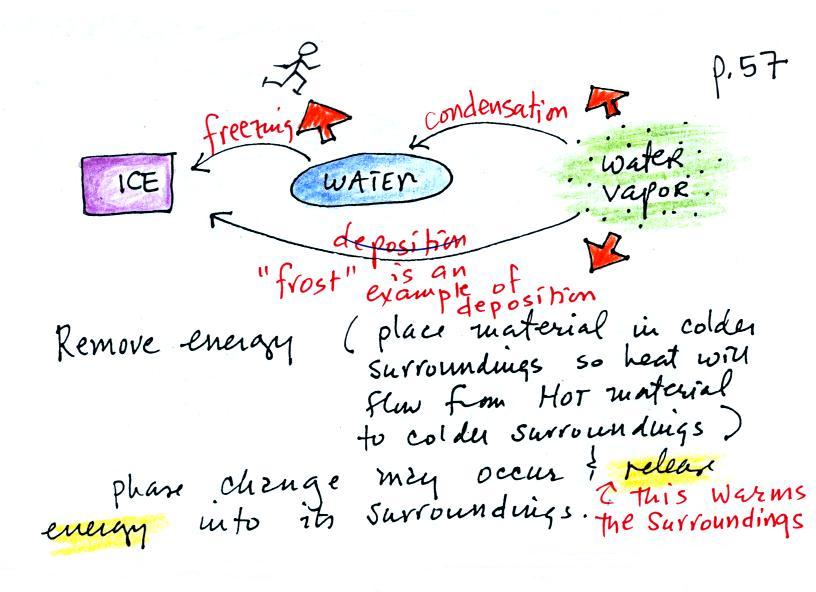 p.57
freezing
condensation
ICE
WATER
water
vapor
deposition
"frost" is an
example of
deposition
Remove energy (place material in colder
surroundings so heat will
flow from HOT material
to colder surroundings)
phase change may occur & release
energy into its surroundings.
↑ this warms
the surroundings